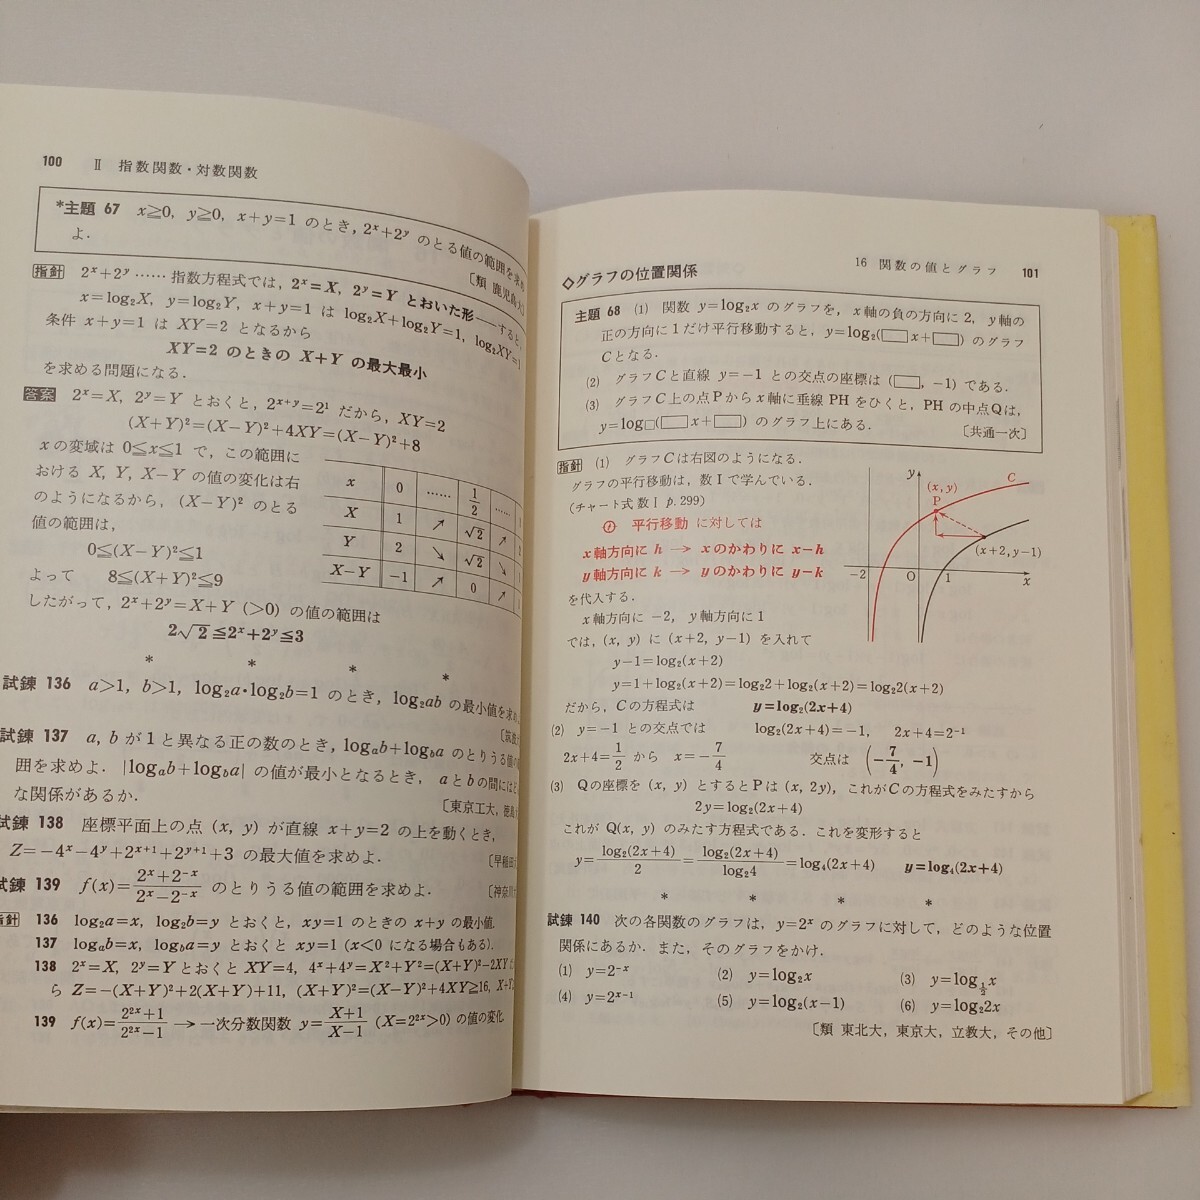 100 Ⅱ 指数関数・対数関数
*主題 67 x≧0, y≧0, x+y=1 のとき, 2ˣ+2ʸ のとる値の範囲を求め
よ.
〔類 鹿児島大〕
指針 2ˣ+2ʸ ……指数方程式では, 2ˣ=X, 2ʸ=Y とおいた形——すると,
x=log₂X, y=log₂Y, x+y=1 は log₂X+log₂Y=1, log₂XY=1
条件 x+y=1 は XY=2 となるから
XY=2 のときの X+Y の最大最小
を求める問題になる.
答案 2ˣ=X, 2ʸ=Y とおくと, 2ˣ⁺ʸ=2¹ だから, XY=2
(X+Y)²=(X−Y)²+4XY=(X−Y)²+8
xの変域は 0≦x≦1 で, この範囲に
おける X, Y, X−Y の値の変化は右
のようになるから, (X−Y)² のとる
値の範囲は,
0≦(X−Y)²≦1
よって 8≦(X+Y)²≦9
したがって, 2ˣ+2ʸ=X+Y (>0) の値の範囲は
2√2≦2ˣ+2ʸ≦3
x 0 …… 1/2 …… 1
X 1 ↗ √2 ↗ 2
Y 2 ↘ √2 ↘ 1
X−Y −1 ↗ 0 ↗ 1
* * * *
試錬 136 a>1, b>1, log₂a・log₂b=1 のとき, log₂ab の最小値を求め
試錬 137 a, b が1と異なる正の数のとき, logₐb+log_b a のとりうる値の
囲を求めよ. |logₐb+log_b a| の値が最小となるとき, aとbの間には
な関係があるか.
〔東京工大, 徳島
試錬 138 座標平面上の点 (x, y) が直線 x+y=2 の上を動くとき,
Z=−4ˣ−4ʸ+2ˣ⁺¹+2ʸ⁺¹+3 の最大値を求めよ.
〔早稲田
試錬 139 f(x)=(2ˣ+2⁻ˣ)/(2ˣ−2⁻ˣ) のとりうる値の範囲を求めよ.
〔神奈川
指針 136 log₂a=x, log₂b=y とおくと, xy=1 のときの x+y の最小値.
137 logₐb=x, log_b a=y とおくと xy=1 (x<0 になる場合もある).
138 2ˣ=X, 2ʸ=Y とおくと XY=4, 4ˣ+4ʸ=X²+Y²=(X+Y)²−2XY
ら Z=−(X+Y)²+2(X+Y)+11, (X+Y)²=(X−Y)²+4XY≧16, X+Y
139 f(x)=(2²ˣ+1)/(2²ˣ−1) → 一次分数関数 y=(X+1)/(X−1) (X=2²ˣ>0) の値の変化.
16 関数の値とグラフ 101
◇グラフの位置関係
主題 68 (1) 関数 y=log₂x のグラフを, x軸の負の方向に 2, y軸の
正の方向に1だけ平行移動すると, y=log₂(□x+□) のグラフ
Cとなる.
(2) グラフCと直線 y=−1 との交点の座標は (□, −1) である.
(3) グラフC上の点Pからx軸に垂線PHをひくと, PHの中点Qは,
y=log□(□x+□) のグラフ上にある.
〔共通一次〕
指針 (1) グラフCは右図のようになる.
グラフの平行移動は, 数Ⅰで学んでいる.
(チャート式数Ⅰ p.299)
平行移動 に対しては
x軸方向に h → xのかわりに x−h
y軸方向に k → yのかわりに y−k
を代入する.
x軸方向に −2, y軸方向に1
では, (x, y) に (x+2, y−1) を入れて
y−1=log₂(x+2)
y=1+log₂(x+2)=log₂2+log₂(x+2)=log₂2(x+2)
だから, Cの方程式は y=log₂(2x+4)
y
(x, y)
P
C
(x+2, y−1)
−2 O 1 x
(2) y=−1 との交点では log₂(2x+4)=−1, 2x+4=2⁻¹
2x+4=1/2 から x=−7/4 交点は (−7/4, −1)
(3) Qの座標を (x, y) とするとPは (x, 2y), これがCの方程式をみたすから
2y=log₂(2x+4)
これが Q(x, y) のみたす方程式である. これを変形すると
y=log₂(2x+4)/2=log₂(2x+4)/log₂4=log₄(2x+4) y=log₄(2x+4)
* * * *
試錬 140 次の各関数のグラフは, y=2ˣ のグラフに対して, どのような位置
関係にあるか. また, そのグラフをかけ.
(1) y=2⁻ˣ (2) y=log₂x (3) y=log_{1/2}x
(4) y=2ˣ⁻¹ (5) y=log₂(x−1) (6) y=log₂2x
〔類 東北大, 東京大, 立教大, その他〕